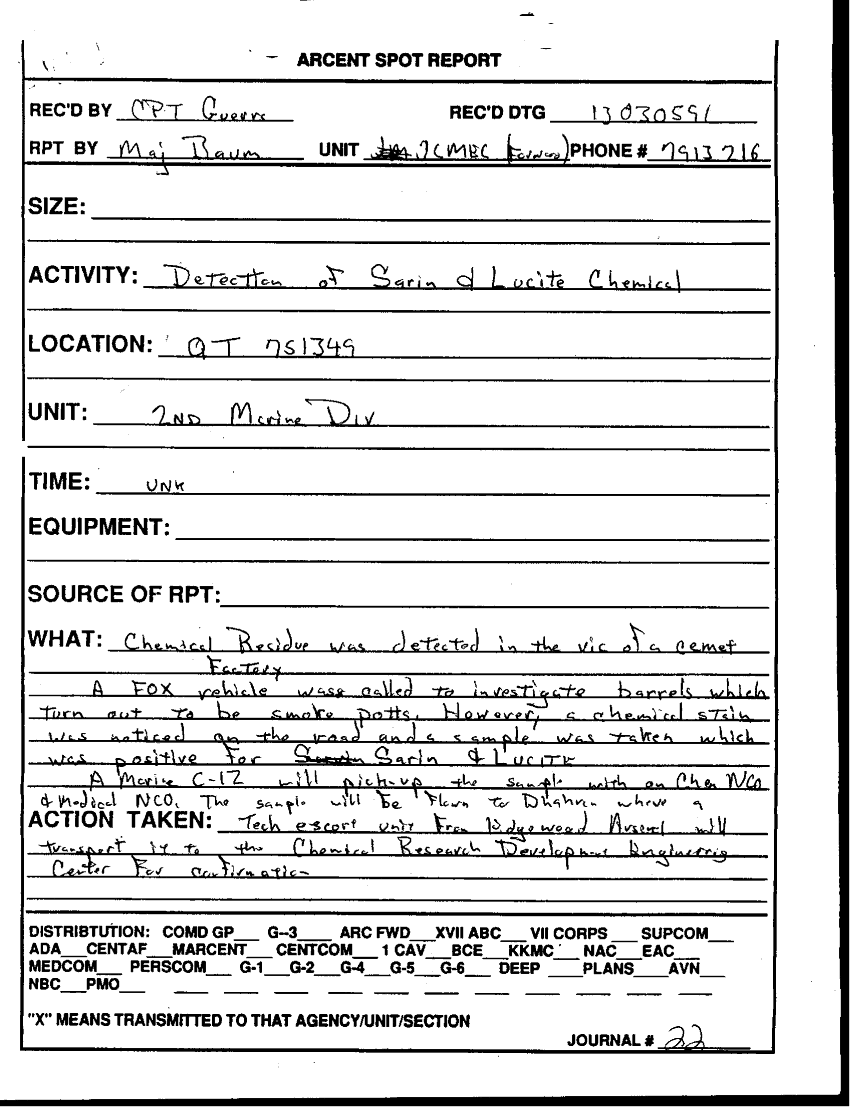 ARCENT SPOT REPORT
REC'D BY CPT Guerre REC'D DTG 13030591
RPT BY Maj Baum UNIT JCMEC (Forward) PHONE # 7913216
SIZE:
ACTIVITY: Detection of Sarin & Lucite Chemical
LOCATION: QT 751349
UNIT: 2ND Marine Div
TIME: UNK
EQUIPMENT:
SOURCE OF RPT:
WHAT: Chemical Recidue was detected in the vic of a cemet
Factory
A FOX vehicle wass called to investigate barrels which
turn out to be smoke potts. However, a chemical stain
was noticed on the road and a sample was taken which
was positive for Sarin & Lucite
A Marine C-12 will pick-up the sample with an Chem NCO
& Medical NCO. The sample will be flown to Dhahran where a
ACTION TAKEN: Tech escort unit From Edgewood Arsenal will
transport it to the Chemical Research Development Engineering
Center For confirmation
DISTRIBTUTION: COMD GP___ G--3___ ARC FWD___ XVII ABC___ VII CORPS___ SUPCOM___
ADA___ CENTAF___ MARCENT___ CENTCOM___ 1 CAV___ BCE___ KKMC___ NAC___ EAC___
MEDCOM___ PERSCOM___ G-1___ G-2___ G-4___ G-5___ G-6___ DEEP___ PLANS___ AVN___
NBC___ PMO___
"X" MEANS TRANSMITTED TO THAT AGENCY/UNIT/SECTION
JOURNAL # 22